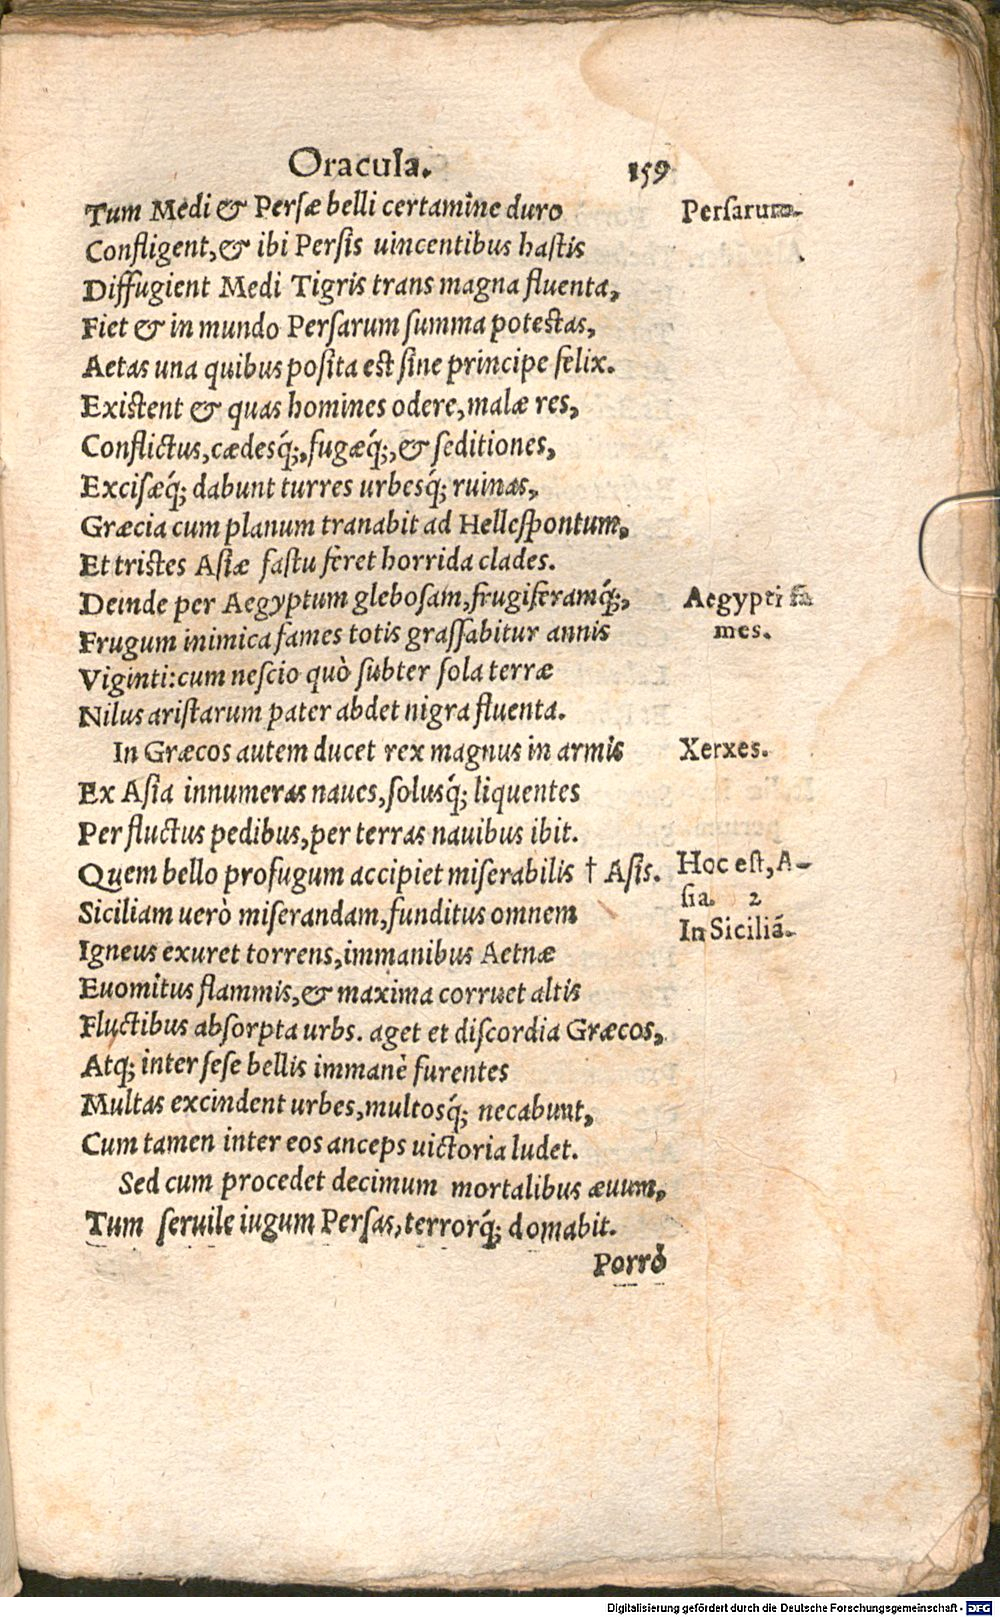 Oracula. 159
Tum Medi & Persæ belli certamine duro
Persarum.
Confligent, & ibi Persis uincentibus hastis
Diffugient Medi Tigris trans magna fluenta,
Fiet & in mundo Persarum summa potestas,
Aetas una quibus posita est sine principe felix.
Existent & quas homines odere, malæ res,
Conflictus, cædesq́;, fugæq́;, & seditiones,
Excisæq́; dabunt turres urbesq́; ruinas,
Græcia cum planum tranabit ad Hellespontum,
Et tristes Asiæ fastu feret horrida clades.
Deinde per Aegyptum glebosam, frugiferamq́;,
Aegypti fa
Frugum inimica fames totis grassabitur annis
mes.
Viginti: cum nescio quò subter sola terræ
Nilus aristarum pater abdet nigra fluenta.
In Græcos autem ducet rex magnus in armis
Xerxes.
Ex Asia innumeras naues, solusq́; liquentes
Per fluctus pedibus, per terras nauibus ibit.
Quem bello profugum accipiet miserabilis † Asis.
Hoc est, A-
sia. 2
Siciliam uerò miserandam, funditus omnem
In Siciliã.
Igneus exuret torrens, immanibus Aetnæ
Euomitus flammis, & maxima corruet altis
Fluctibus absorpta urbs. aget et discordia Græcos,
Atq; inter sese bellis immanè furentes
Multas excindent urbes, multosq́; necabunt,
Cum tamen inter eos anceps uictoria ludet.
Sed cum procedet decimum mortalibus æuum,
Tum seruile iugum Persas, terrorq́; domabit.
Porrò
Digitalisierung gefördert durch die Deutsche Forschungsgemeinschaft - DFG